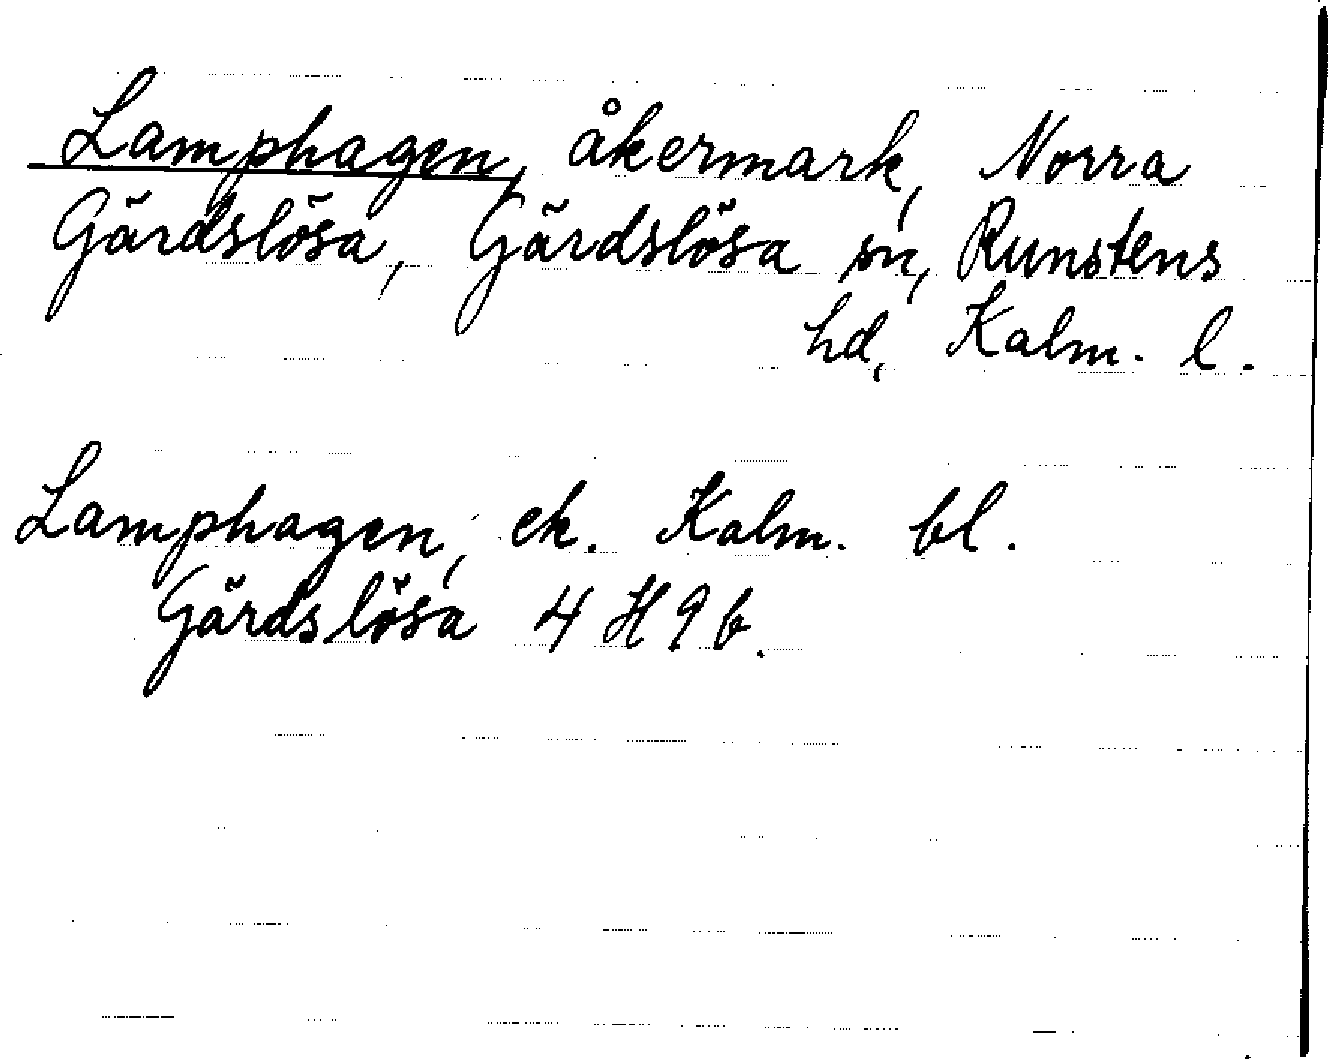 Lamphagen, åkermark, Norra
Gärdslösa, Gärdslösa sn, Runstens
hd, Kalm. l.
Lamphagen, ek. Kalm. bl.
Gärdslösa 4 H 9 b.